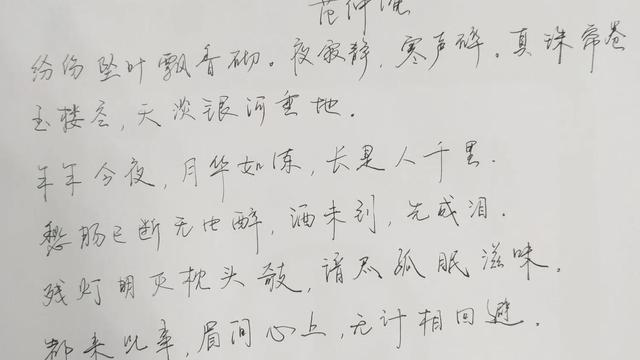 范仲淹
纷纷坠叶飘香砌。夜寂静，寒声碎。真珠帘卷
玉楼空，天淡银河垂地。
年年今夜，月华如练，长是人千里。
愁肠已断无由醉，酒未到，先成泪。
残灯明灭枕头敧，谙尽孤眠滋味。
都来此事，眉间心上，无计相回避。